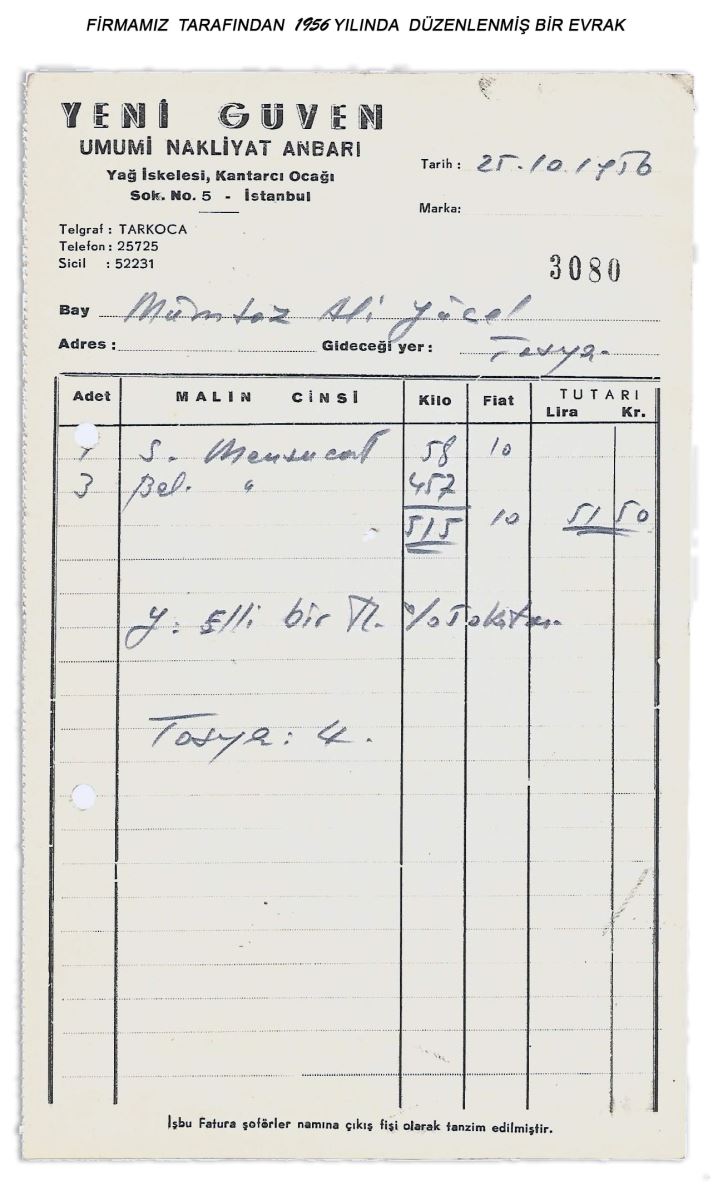 FİRMAMIZ TARAFINDAN 1956 YILINDA DÜZENLENMİŞ BİR EVRAK
YENİ GÜVEN
UMUMİ NAKLİYAT ANBARI
Yağ İskelesi, Kantarcı Ocağı
Sok. No. 5 - İstanbul
Tarih : 25.10.1956
Marka:
Telgraf : TARKOCA
Telefon : 25725
Sicil : 52231
3080
Bay Mümtaz Ali Yücel
Adres : Gideceği yer : Tosya.
Adet MALIN CİNSİ Kilo Fiat TUTARI
Lira Kr.
1 S. Mensucat 58 10
3 Bel. " 457
515 10 51 50
Y: Elli bir Tl.
Tosya: 4.
İşbu Fatura şoförler namına çıkış fişi olarak tanzim edilmiştir.